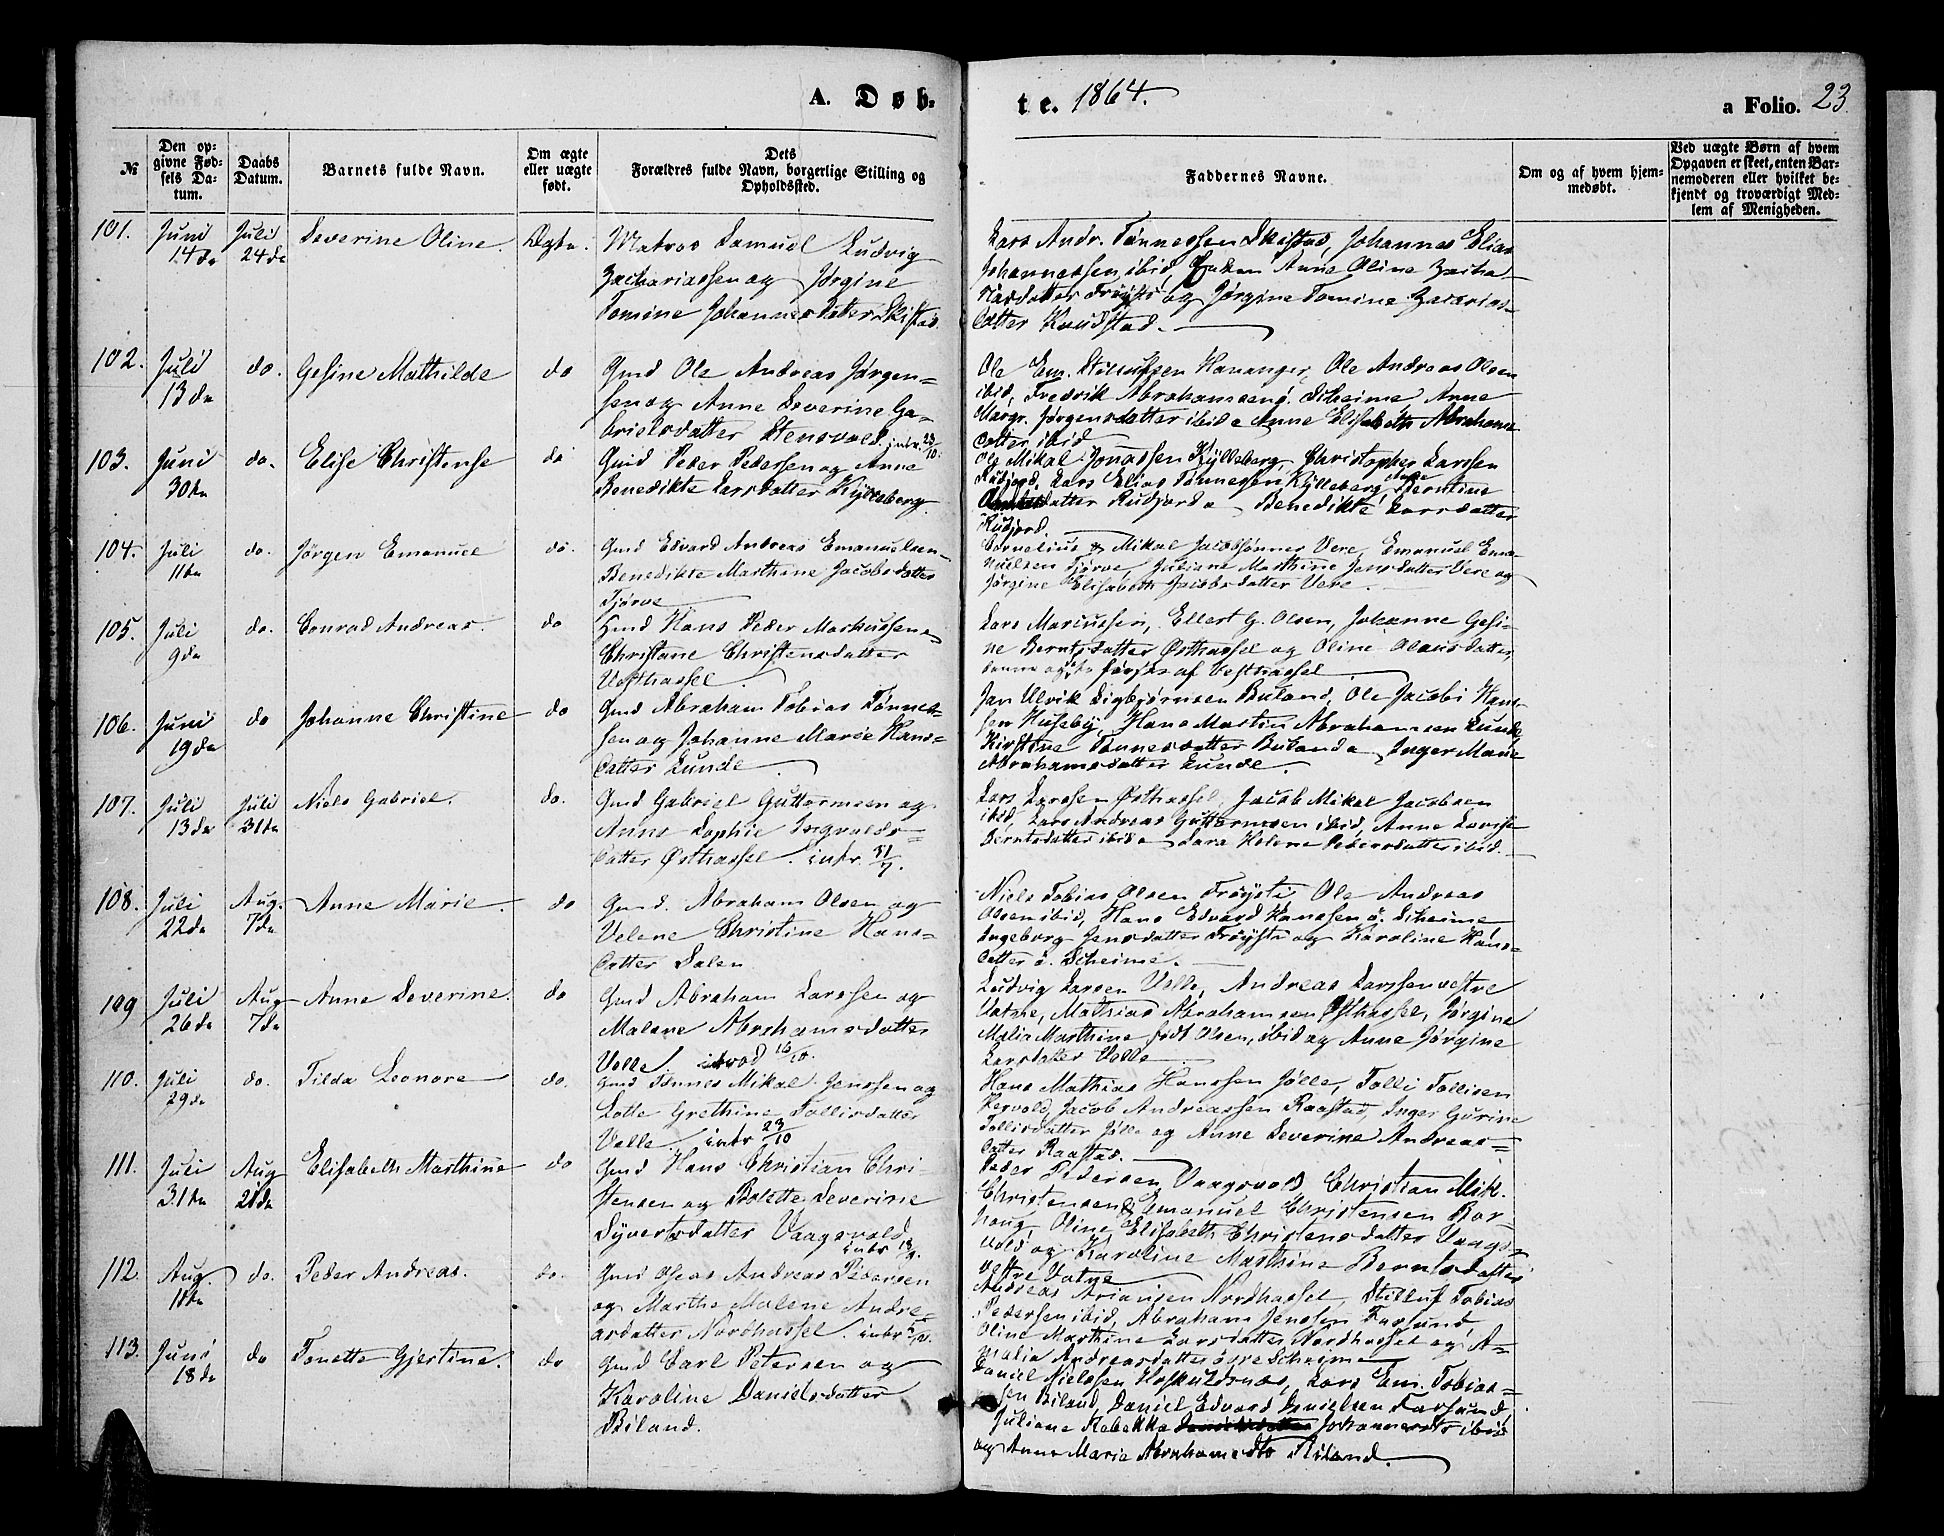 A. Døb-
te. 1864.
a Folio. 23
№
Den op-
givne Fød-
sels Da-
tum.
Daabs
Datum.
Barnets fulde Navn.
Om ægte
eller uægte
født.
Dets
Forældres fulde Navn, borgerlige Stilling og
Opholdssted.
Faddernes Navne.
Om og af hvem hjem-
medøbt.
Ved uægte Børn af hvem
Opgaven er skeet, enten Bar-
nemoderen eller hvilket be-
kjendt og troværdigt Med-
lem af Menigheden.
101. Juni 14de Juli 24de Severine Oline. Ægte.
Matros Samuel Ludvig
Zachariassen og Jørgine
Tomine Johannesdatter Skistad.
Lars Andr. Tønnessen Skistad, Johannes Elias
Johannessen ibid, Enken Anne Oline Zacha-
riasdatter Frøysti og Jørgine Tomine Zacarias-
datter Knudstad.
102. Juli 13de do. Gesine Mathilde do
Gmd Ole Andreas Jørgen-
sen og Anne Severine Ga-
brielsdatter Stensvold. intr. 23/10.
Ole Em. Hananger, Ole Andreas Olsen
ibid, Fredrik Abrahamsen ø. Scheime Anne
Margr. Jørgensdatter ibid & Anne Elisabeth Abrahams-
datter ibid
103. Juni 30te do. Elise Christense do
Gmd Peder Pedersen og Anne
Benedikte Larsdatter Kylleberg.
Ole Mikal Jonassen Kylleberg, Christopher Larssen
Rudjord, Lars Elias Tønnesen Kylleberg, Berntine
datter Rudjord & Benedikte Larsdatter
Rudjord.
104. Juli 11te do. Jørgen Emanuel do.
Gmd Edvard Andreas Emanuelsen
Benedikte Marthine Jacobsdatter
Tjørve
Cornelius & Mikal Jacobsønner Vere, Emanuel Ema-
nuelsen Tjørve, Juliane Marthine Jensdatter Vere og
Jørgine Elisabeth Jacobsdatter Vere.
105. Juli 9de do. Conrad Andreas. do
Gmd Hans Peder Markussen &
Christane Christensdatter
Vesthassel
Lars Marcussen, Ellert G. Olsen, Johanne Gesi-
ne Berntsdatter Østhassel og Oline Olausdatter,
af Vesthassel
106. Juni 19de do Johanne Christine do
Gmd Abraham Tobias Tønnes-
sen og Johanne Marie Hans-
datter Lunde
Jan Ulrik Sigbjørnsen Buland, Ole Jacobi Hans-
sen Huseby, Hans Martin Abrahamsen Lunde,
Kirstine Tønnesdatter Buland & Inger Marie
Abrahamsdatter Lunde.
107. Juli 13de Juli 31te Niels Gabriel. do.
Gmd Gabriel Guttormsen og
Anne Sophie Ingvalds-
datter Østhassel. intr. 31/7.
Lars Larssen Østhassel, Jacob Mikal Jacobsen
ibid, Lars Andreas Guttormsen ibid, Anne Lovise
Berntsdatter ibid & Sara Helene Pedersdatter ibid.
108. Juli 22de Aug. 7de Anne Marie. do
Gmd. Abraham Olsen og
Velene Christine Hans-
datter Dalen
Niels Tobias Olsen Frøysti Ole Andreas
Olsen ibid, Hans Edvard Hanssen ø. Scheime
Ingeborg Jensdatter Frøysti og Karoline Hans-
datter ø. Scheime.
109 Juli 26de Aug 7de Anne Severine. do
Gmd Abraham Larssen og
Malene Abrahamsdatter
Velle. introd 16/10.
Ludvig Larsen Velle, Andreas Larssen vestre
Vatne, Mathias Abrahamsen Østhassel, Jørgine
Malia Marthine født Olsen, ibid og Anne Jørgine
Larsdatter Velle
110. Juli 29de do. Tilda Leonore do.
Gmd Tønnes Mikal Jenssen og
Lotte Grethine Tollisdatter
Velle. intr 23/10
Hans Mathias Hanssen Jølle, Tolli Tollisen
Hervold, Jacob Andreassen Raastad, Inger Gurine
Tollisdatter Jølle og Anne Severine Andreas-
datter Raastad.
111. Juli 31te Aug 21de Elisabeth Marthine do
Gmd Hans Christian Chri-
stensen og Bolette Severine
Syvertsdatter Vaagsvold
Peder Pedersen Vaagsvold Christian Mik.
Christensen & Emanuel Christensen Bor-
houg, Oline Elisabeth Christensdatter Vaags-
vold og Karoline Marthine Berntsdatter
vestre Vatne
112. Aug. 11te do. Peder Andreas. do.
Gmd Oseas Andreas Pedersen
og Marthe Malene Andre-
asdatter Nordhassel.
Andreas Ariansen Nordhassel, Stilluf Tobias
Pedersen ibid, Abraham Jenssen Farsund
Oline Marthine Larsdatter Nordhassel og A-
malia Andreasdatter øvre Scheime
113. Juni 18de do Tonette Gjertine. do
Gmd Carl Petersen og
Karoline Danielsdatter
Biland.
Daniel Nielssen Høskuldsnæs, Lars Em. Tobias-
sen Biland, Daniel Edvard Danielsen Farsund,
Juliane Rebekka Johannesdtr ibid
og Anne Marie Abrahamsdtr Biland.